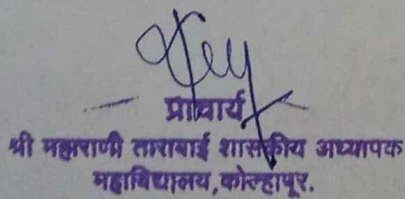 प्राचार्य
श्री महाराणी ताराबाई शासकीय अध्यापक
महाविद्यालय,कोल्हापूर.